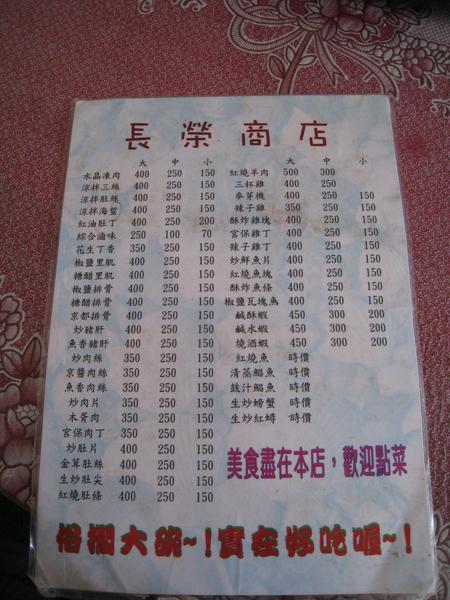 長榮商店
大 中 小
水晶凍肉 400 250 150
涼拌三絲 400 250 150
涼拌肚絲 400 250 150
涼拌海蜇 400 250 150
紅油肚丁 400 250 200
綜合滷味 250 100 70
花生丁香 350 250 150
椒鹽里肌 400 250 150
糖醋里肌 400 250 150
椒鹽排骨 400 250 150
糖醋排骨 400 250 150
京都排骨 400 250 150
炒豬肝 400 250 150
魚香豬肝 400 250 150
炒肉絲 350 250 150
京醬肉絲 350 250 150
魚香肉絲 350 250 150
炒肉片 350 250 150
木胥肉 350 250 150
宮保肉丁 350 250 150
炒肚片 400 250 150
金茸肚絲 400 250 150
生炒肚尖 400 250 150
紅燒肚條 400 250 150
大 中 小
紅燒羊肉 500 300
三杯雞 400 250
麥芽機 400 250 150
辣子雞 350 250 150
酥炸雞塊 400 250 150
宮保雞丁 400 250 150
辣子雞丁 400 250 150
炒鮮魚片 400 250 150
紅燒魚塊 400 250 150
酥炸魚條 400 250 150
椒鹽瓦塊魚 400 250 150
鹹酥蝦 450 300 200
鹹水蝦 450 300 200
燒酒蝦 450 300 200
紅燒魚 時價
清蒸鯧魚 時價
豉汁鯧魚 時價
生炒螃蟹 時價
生炒紅蟳 時價
美食盡在本店，歡迎點菜
俗擱大碗~!實在好吃喔~!